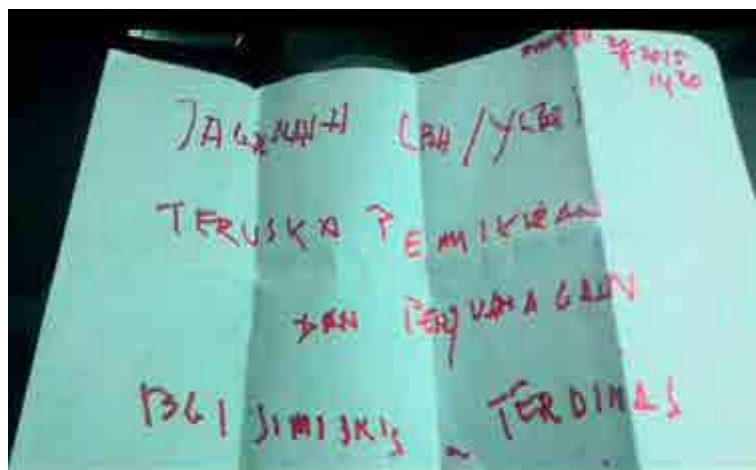 2015
14,30
JAGANLAH LBH/YLBHI
TERUSKA PEMIKIRAN
DAN PERJUANGAN
BGI SIMISKIS TERDINAS